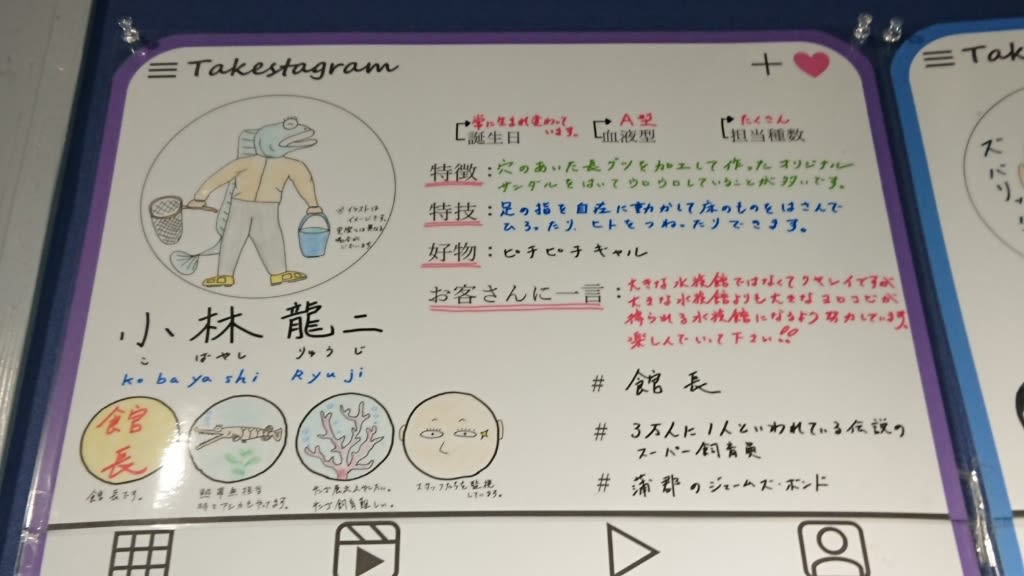 Takestagram
常に生まれ変わって
います。
誕生日
A型
血液型
たくさん
担当種数
特徴：穴のあいた長グツを加工して作ったオリジナル
サンダルをはいてウロウロしていることが多いです。
特技：足の指を自在に動かして床のものをはさんで
ひろったり、ヒトをつねったりできます。
好物：ピチピチギャル
お客さんに一言：大きな水族館ではなくてリサレイですが
大きな水族館よりも大きなヨロコビが
得られる水族館になるよう努力しています。
楽しんでいって下さい!!
※イラストは
イメージです。
実際とは異なる
場合が
ございます。
小林 龍二
こ ばやし りゅう じ
kobayashi Ryuji
館長
館長です。
スタッフたちを監視
しています。
# 館長
# 3万人に1人といわれている伝説の
スーパー飼育員
# 蒲郡のジェームズ・ボンド
Ta
ズバリ